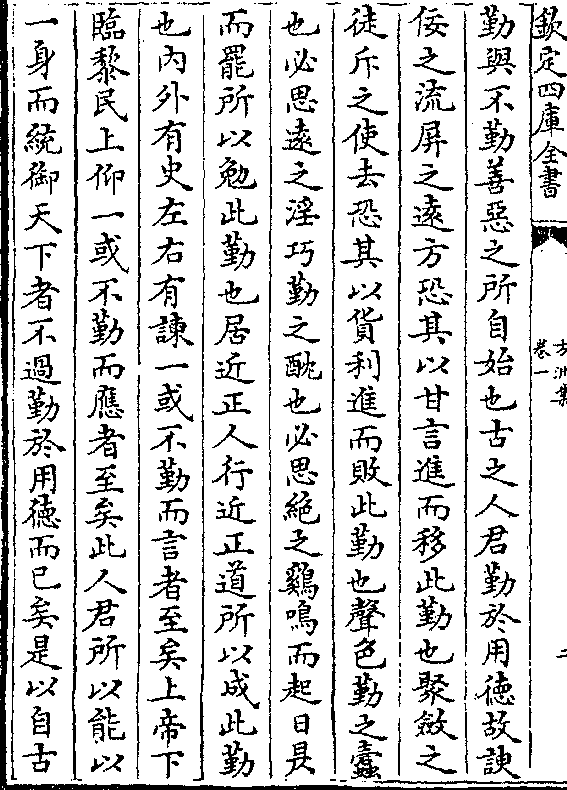 欽定四庫全書
方洲集
卷一
二
勤與不勤善惡之所自始也古之人君勤於用徳故諛
佞之流屏之逺方恐其以甘言進而移此勤也聚斂之
徒斥之使去恐其以貨利進而敗此勤也聲色勤之蠧
也必思逺之淫巧勤之酖也必思絶之鷄鳴而起日昃
而罷所以勉此勤也居近正人行近正道所以成此勤
也内外有史左右有諫一或不勤而言者至矣上帝下
臨黎民上仰一或不勤而應者至矣此人君所以能以
一身而統御天下者不過勤於用徳而已矣是以自古